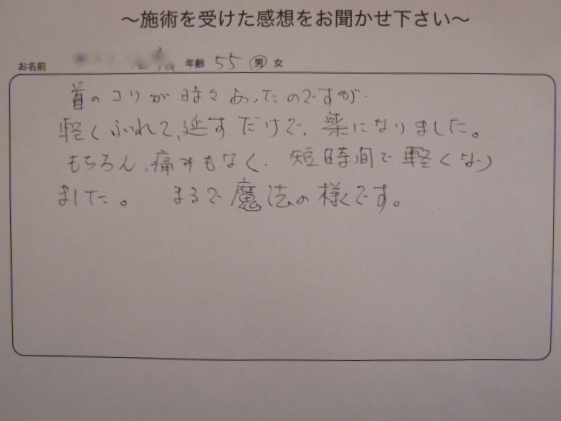 ～施術を受けた感想をお聞かせ下さい～
お名前 年齢 55 男 女
首のコリが時々あったのですが
軽くふれて、延すだけで、楽になりました。
もちろん、痛みもなく、短時間で軽くなり
ました。 まるで魔法の様です。